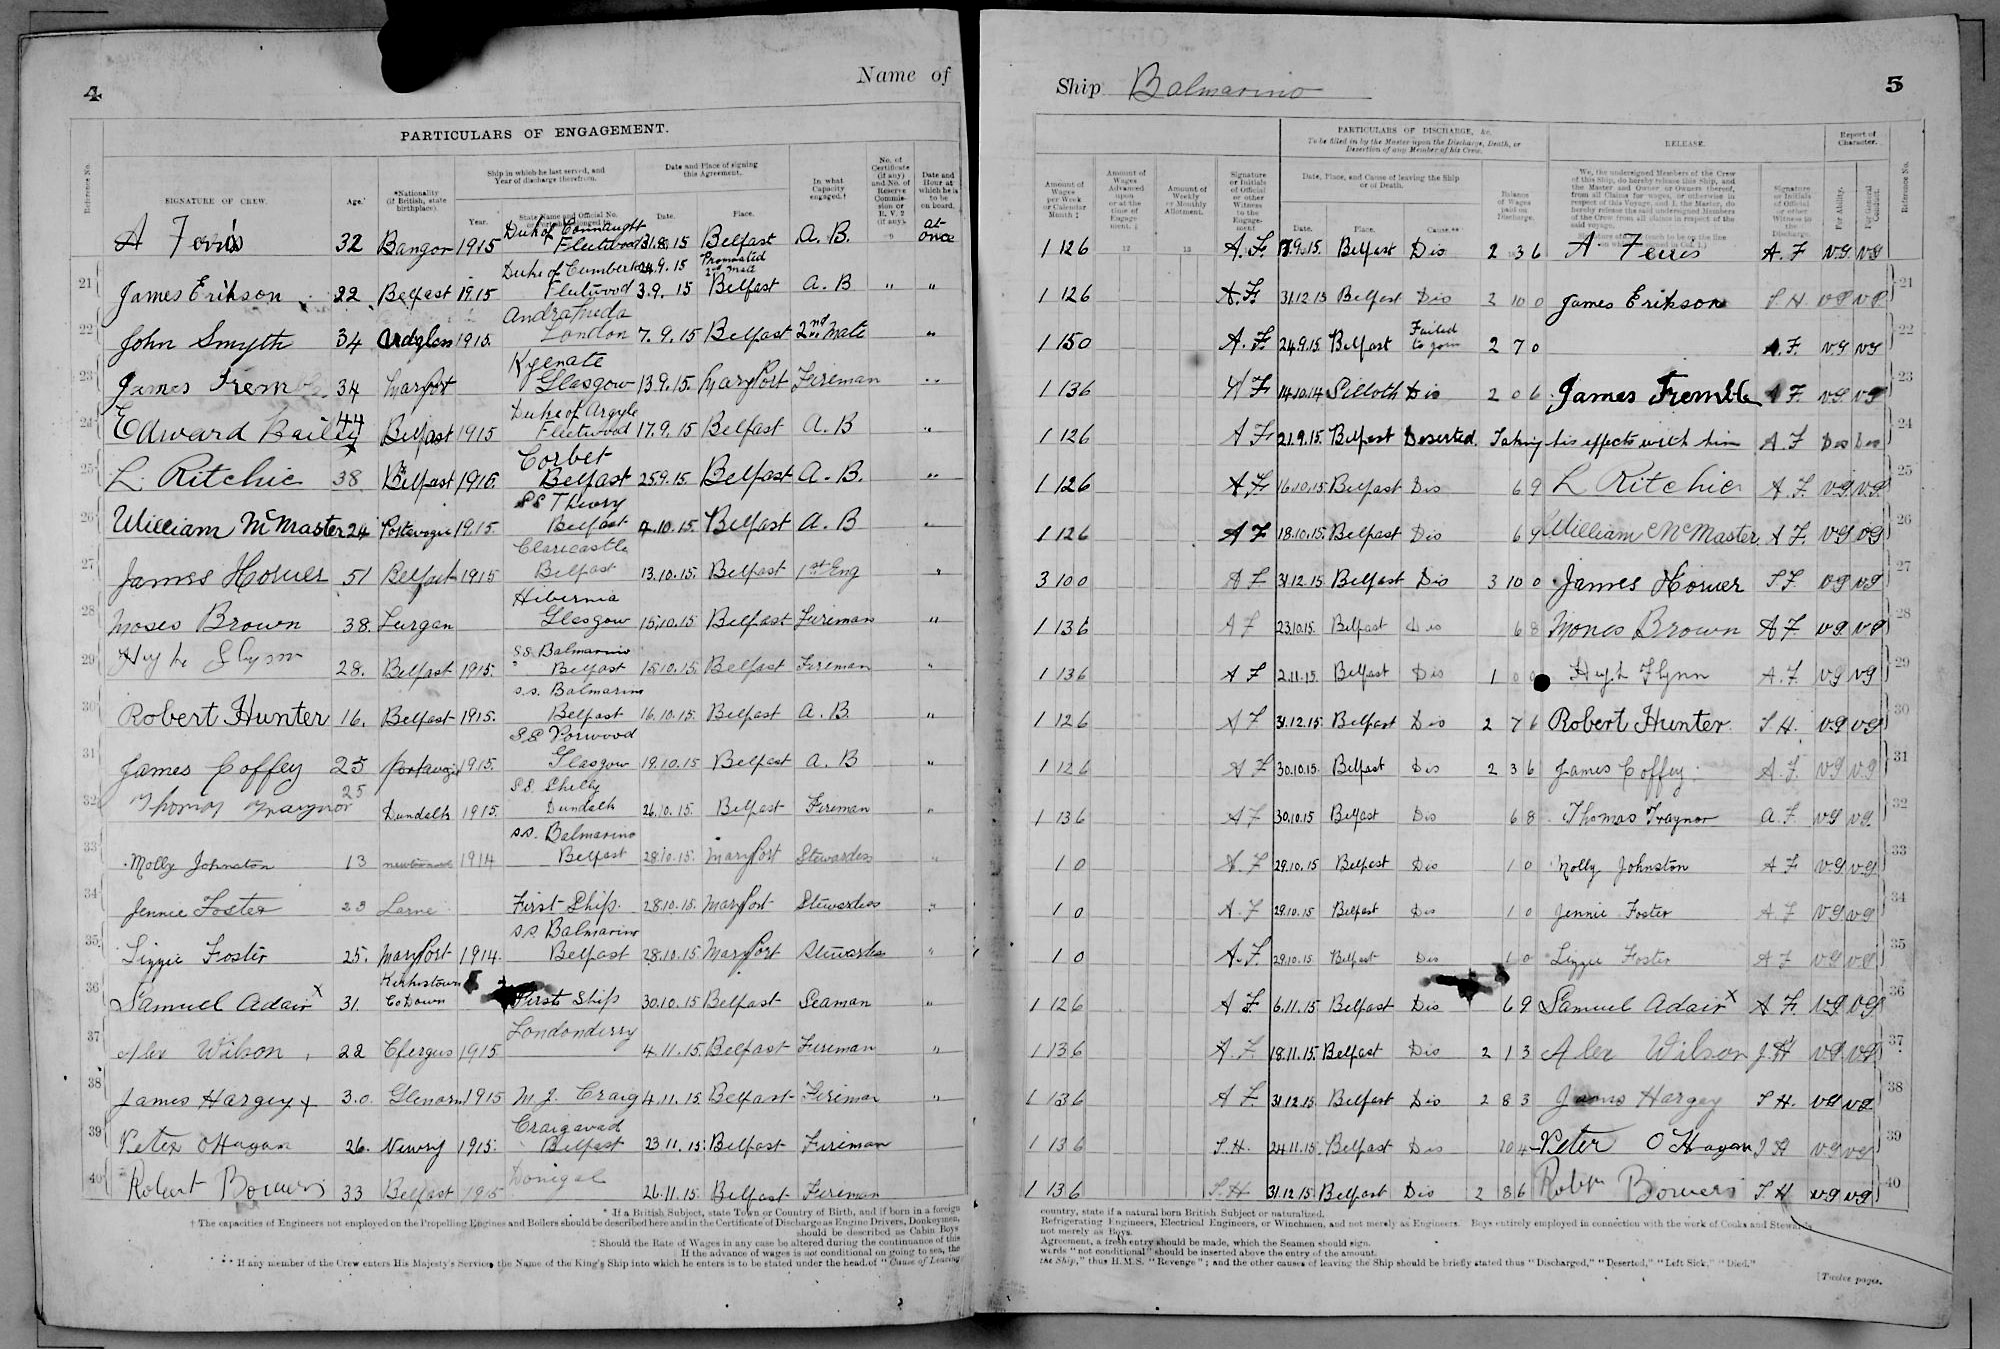 4
Name of
PARTICULARS OF ENGAGEMENT.
Reference No.
SIGNATURE OF CREW.
Age.
*Nationality (if British, state birthplace).
Ship in which he last served, and Year of discharge therefrom.
Year.
State Name and Official No.
Date and Place of signing this Agreement.
Date.
Place.
In what Capacity engaged.†
No. of Certificate (if any) and No. of Reserve Commission or R.V.2 (if any).
Date and Hour at which he is to be on board.
A Ferris 32 Bangor 1915 Duke of Connaught Fleetwood 31.8.15 Belfast A.B. at once
Promoted 2nd Mate 24.9.15
21 James Erikson 22 Belfast 1915 Duke of Cumberland Fleetwood 3.9.15 Belfast A.B " "
22 John Smyth 34 Ardglass 1915 Andromeda London 7.9.15 Belfast 2nd Mate "
23 James Tremble 34 Maryport Kyenate Glasgow 13.9.15. Maryport Fireman "
24 Edward Baily x 44 Belfast 1915 Duke of Argyle Fleetwood 17.9.15 Belfast A.B "
25 L. Ritchie 38 Belfast 1915. Corbet Belfast 25.9.15. Belfast A.B. "
26 William McMaster 24 Portavogie 1915. SS Theory Belfast 4.10.15 Belfast A.B "
27 James Horner 51 Belfast 1915 Clarecastle Belfast 13.10.15. Belfast 1st Eng "
28 Moses Brown 38. Lurgan Hibernia Glasgow 15.10.15 Belfast Fireman "
29 Hugh Flynn 28. Belfast 1915. S.S. Balmarino Belfast 15.10.15. Belfast Fireman "
30 Robert Hunter 16. Belfast 1915. s.s. Balmarino Belfast 16.10.15. Belfast A.B. "
31 James Coffey 25 Portavogie 1915. SS Norwood Glasgow 19.10.15 Belfast A.B "
32 Thomas Traynor 25 Dundalk 1915. SS Shelly Dundalk 26.10.15. Belfast Fireman "
33 Molly Johnston 13 1914 s.s. Balmarino Belfast 28.10.15. Maryport Stewardess "
34 Jennie Foster 23 Larne First Ship. 28.10.15. Maryport Stewardess "
35 Lizzie Foster 25. Maryport 1914 s.s. Balmarino Belfast 28.10.15 Maryport Stewardess "
36 Samuel Adair x 31. Kirkistown Co Down First Ship 30.10.15 Belfast Seaman "
37 Alex Wilson 22 Cfergus 1915 Londonderry 4.11.15. Belfast Fireman "
38 James Hargey x 30. Glenarm 1915 M.J. Craig 4.11.15 Belfast Fireman "
39 Peter OHagan 26. Newry 1915. Craigavad Belfast 23.11.15. Belfast Fireman
40 Robert Bowers 33 Belfast 1915 Donegal 26.11.15. Belfast Fireman
* If a British Subject, state Town or Country of Birth, and if born in a foreign
† The capacities of Engineers not employed on the Propelling Engines and Boilers should be described here and in the Certificate of Discharge as Engine Drivers, Donkeymen,
should be described as Cabin Boys
‡ Should the Rate of Wages in any case be altered during the continuance of this
If the advance of wages is not conditional on going to sea, the
** If any member of the Crew enters His Majesty's Service, the Name of the King's Ship into which he enters is to be stated under the head of "Cause of Leaving
Ship Balmarino
5
PARTICULARS OF DISCHARGE, &c.
To be filled in by the Master upon the Discharge, Death, or Desertion of any Member of his Crew.
RELEASE.
Report of Character.
Amount of Wages per Week or Calendar Month ‡
Amount of Wages Advanced upon or at the time of Engagement. ‡
Amount of Weekly or Monthly Allotment.
Signature or Initials of Official or other Witness to the Engagement
Date, Place, and Cause of leaving the Ship or of Death.
Date.
Place.
Cause.**
Balance of Wages paid on Discharge.
We, the undersigned Members of the Crew of this Ship, do hereby release this Ship, and the Master and Owner or Owners thereof, from all Claims for wages, or otherwise in respect of this Voyage, and I, the Master, do hereby release the undersigned Members of the Crew from all claims in respect of the said voyage.
Signature or Initials of Official or other Witness to the Discharge.
For Ability.
For General Conduct.
Reference No.
1 12 6 A.F. .9.15. Belfast Dis 2 3 6 A Ferris A.F vg. vg
1 12 6 A.F. 31.12.15 Belfast Dis 2 10 0 James Erikson S.H. vg vg. 21
1 15 0 A.F. 24.9.15 Belfast Failed to join 2 7 0 A.F. vg vg 22
1 13 6 A F 14.10.14 Silloth Dis 2 0 6 James Tremble A F. vg. vg 23
1 12 6 A F. 21.9.15. Belfast Deserted. Taking his effects with him A.F Des Des 24
1 12 6 A.F. 16.10.15 Belfast Dis 6 9 L Ritchie A.F. vg. vg. 25
1 12 6 A F 18.10.15. Belfast Dis 6 9 William McMaster. A F. vg vg 26
3 10 0 A F 31.12.15 Belfast Dis 3 10 0 James Horner S F. vg vg 27
1 13 6 A F 23.10.15. Belfast Dis 6 8 Moses Brown A F. vg. vg 28
1 13 6 A F 2.11.15. Belfast Dis 1 0 Hugh Flynn A.F. vg vg 29
1 12 6 A F 31.12.15. Belfast Dis 2 7 6 Robert Hunter. S H. vg vg 30
1 12 6 A F 30.10.15. Belfast Dis 2 3 6 James Coffey. A.F. vg vg 31
1 13 6 A F 30.10.15 Belfast Dis 6 8 Thomas Traynor A.F. vg vg 32
1 0 A.F 29.10.15 Belfast Dis 1 0 Molly Johnston A F vg. vg 33
1 0 A.F 29.10.15 Belfast Dis 1 0 Jennie Foster A.F vg. vg. 34
1 0 A.F. 29.10.15 Belfast Dis 1 0 Lizzie Foster A F vg. vg 35
1 12 6 A F. 6.11.15 Belfast Dis 6 9 Samuel Adair x A F. vg vg 36
1 13 6 A.F. 18.11.15. Belfast Dis 2 1 3 Alex Wilson J.H vg. vg 37
1 13 6 A F. 31.12.15 Belfast Dis 2 8 3 James Hargey S H. vg vg. 38
1 13 6 S.H. 24.11.15. Belfast Dis 10 4 Peter O Hagan S H vg vg 39
1 13 6 S.H 31.12.15 Belfast Dis 2 8 6 Robt Bowers S H vg vg 40
country, state if a natural born British Subject or naturalized.
Refrigerating Engineers, Electrical Engineers, or Winchmen, and not merely as Engineers. Boys entirely employed in connection with the work of Cooks and Stewards
not merely as Boys.
Agreement, a fresh entry should be made, which the Seamen should sign.
words "not conditional" should be inserted above the entry of the amount.
the Ship," thus H.M.S. "Revenge"; and the other causes of leaving the Ship should be briefly stated thus "Discharged," "Deserted," "Left Sick," "Died."
[Twelve pages.